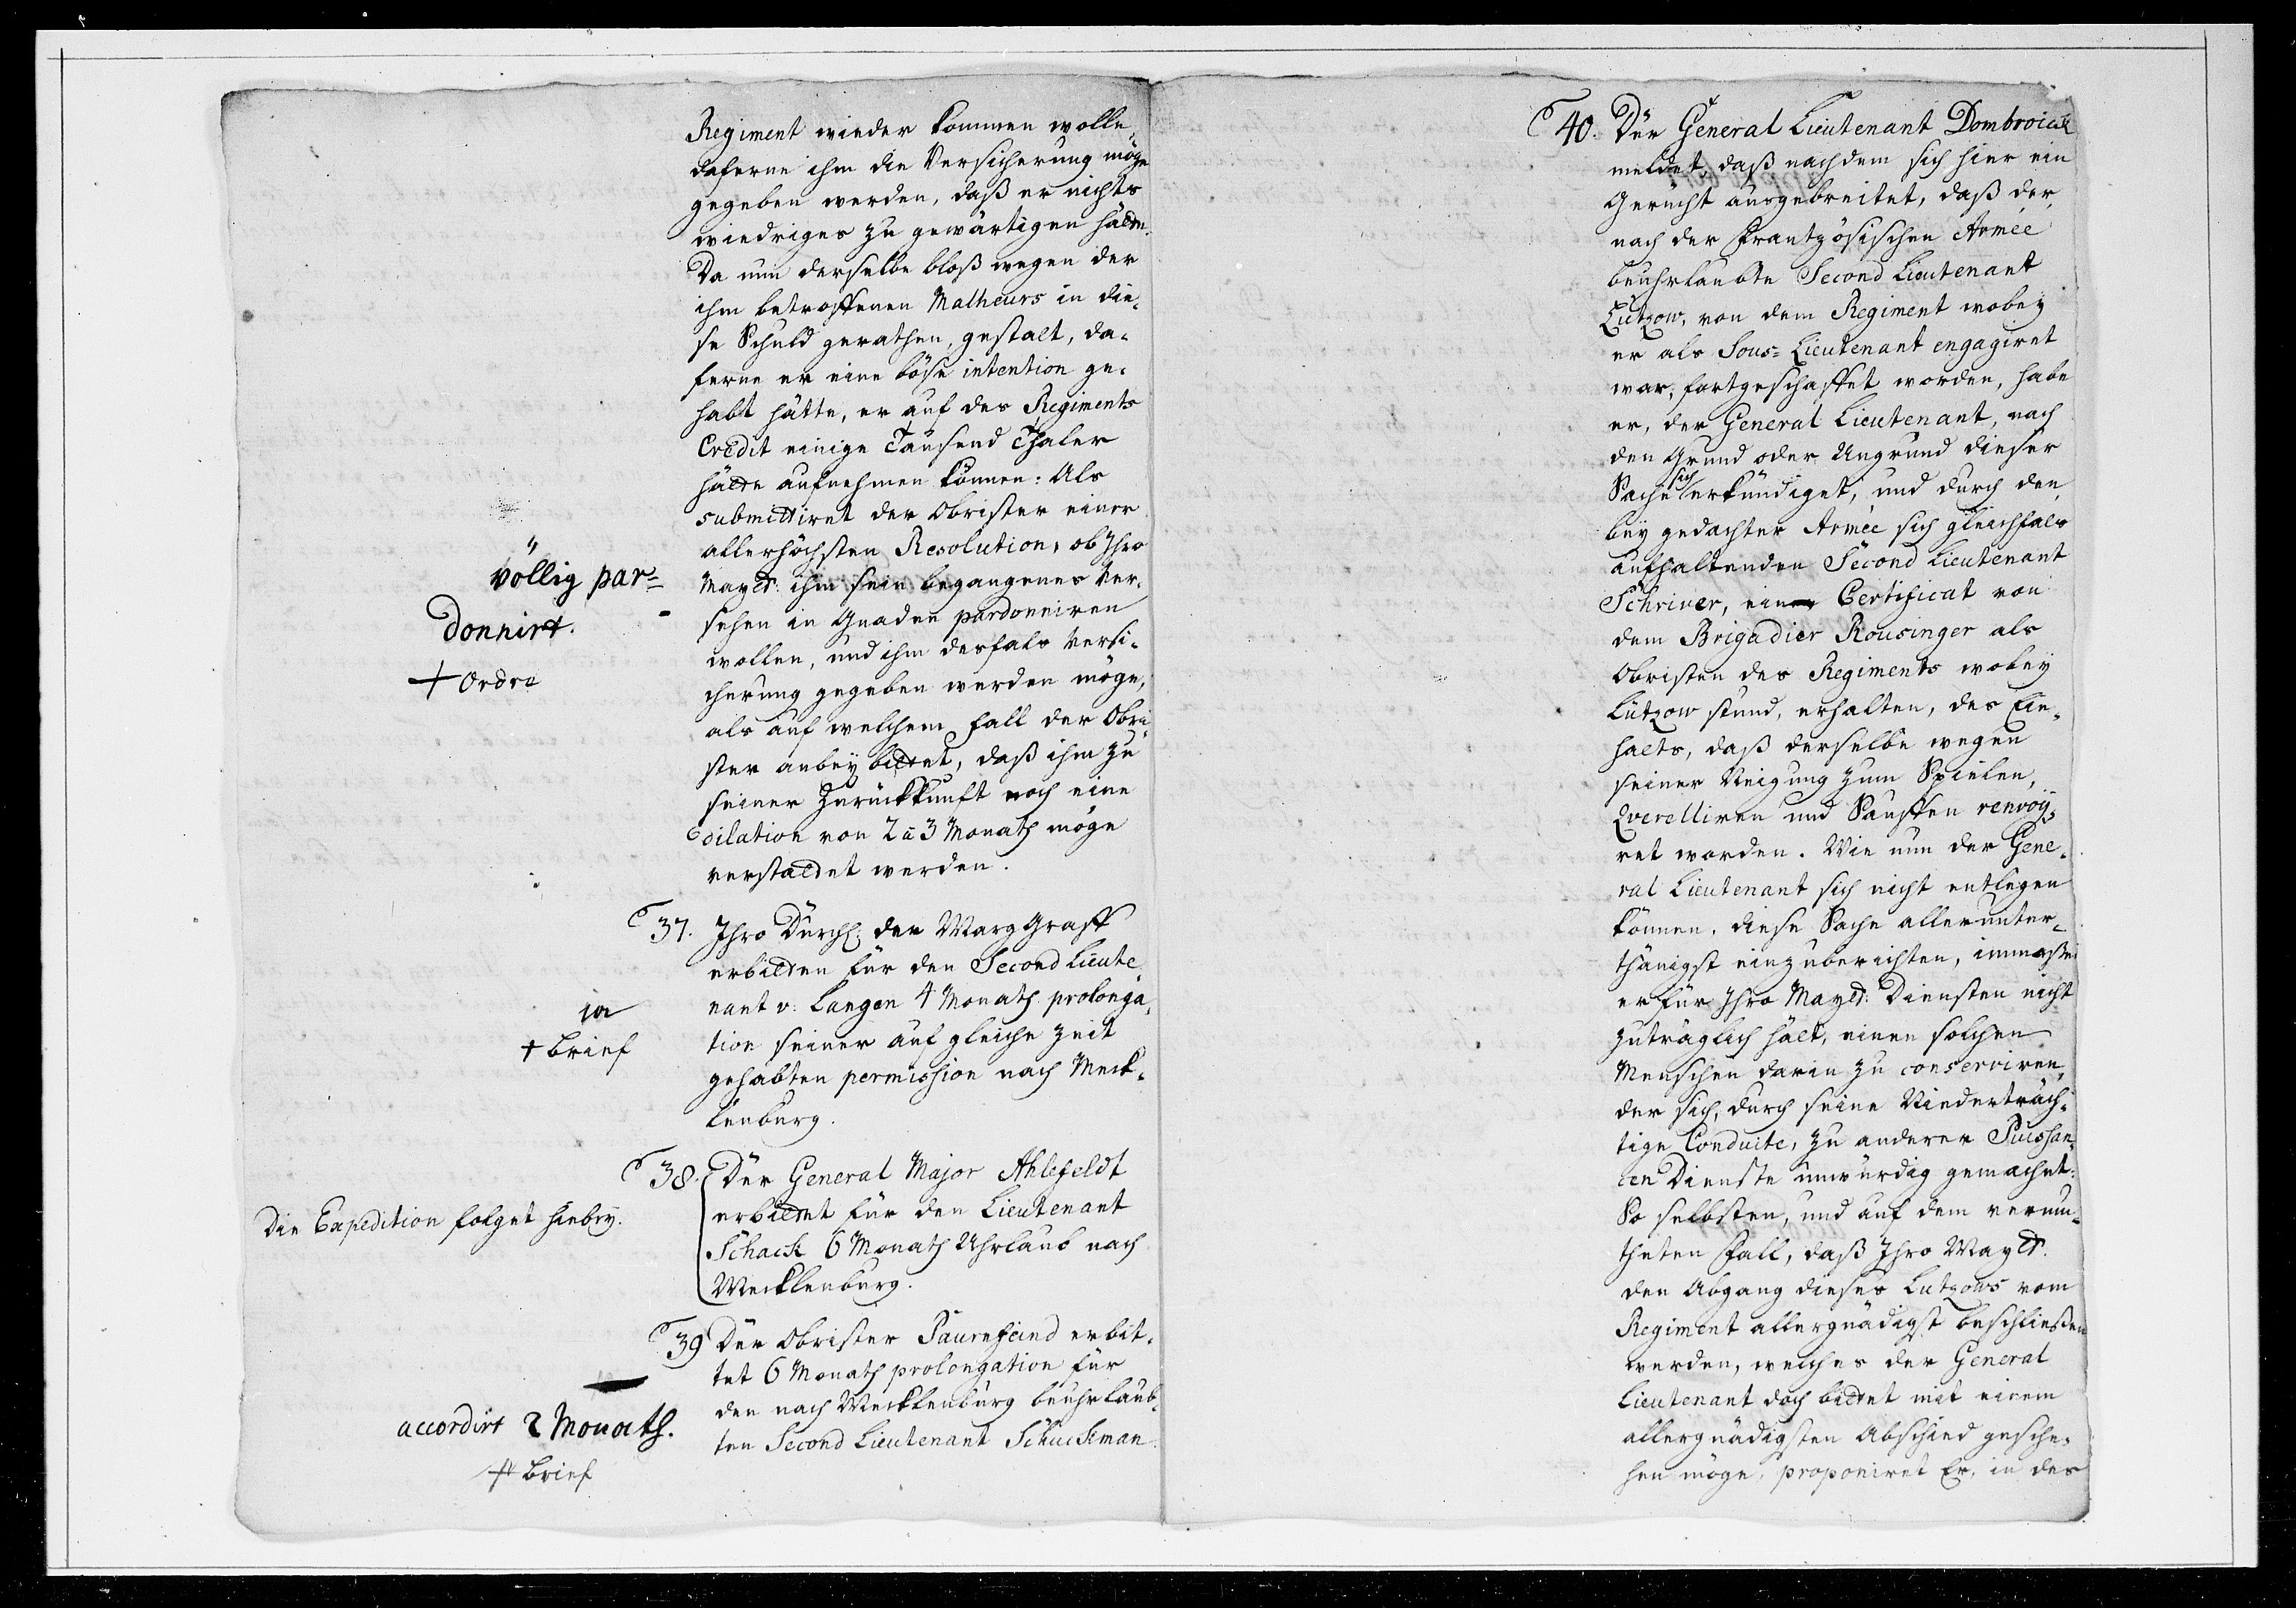 Regiment wieder kommen wolle,
daferne ihm die Versicherung möge
gegeben werden, daß er nichts
wiedriges zu gewärtigen hätte.
Da nun derselbe bloß wegen der
ihm betroffenen Malheurs in die-
se Schuld gerathen, gestalt, da-
ferne er eine böse intention ge-
habt hätte, er auf des Regiments
Credit einige Tausend Thaler
hätte aufnehmen können: Als
submittiret der Obrister einer
allerhöchsten Resolution, ob Ihro
Mayet: ihm sein begangenes Ver-
sehen in Gnaden pardonniren
wollen, und ihm desfals Versi-
cherung gegeben werden möge,
als auf welchem fall der Obri-
ster anbey bittet, daß ihm zu
seiner Zurückkunft noch eine
dilation von 2 à 3 Monath möge
verstattet werden.
völlig par=
donnirt.
+ Ordre
37. Ihro Durchl: der Marg Graff
erbitten für den Second Lieute-
nant v: Langen 4 Monath prolonga-
tion seiner auf gleiche zeit
gehabten permission nach Meck-
lenburg.
ja
+ brief
38. Der General Major Ahlefeldt
erbittet für den Lieutenant
Schack 6 Monath Uhrlaub nach
Mecklenburg.
Die Expedition folget hiebey.
39 Der Obrister Saurefeind erbit-
tet 6 Monath prolongation für
den nach Mecklenburg beuhrlaub-
ten Second Lieutenant Schuckman.
accordirt 2 Monath.
+ brief
40. Der General Lieutenant Dombroick
meldet, daß nachdem sich hier ein
Gerücht ausgebreitet, daß der,
nach der Frantzösischen Armée
beuhrlaubte Second Lieutenant
Lützow, von dem Regiment wobey
er als Sous=Lieutenant engagiret
war, fortgeschaffet worden, habe
er, der General Lieutenant, nach
den Grund oder Ungrund dieser
Sache sich erkundiget, und durch den,
bey gedachter Armée sich gleichfals
aufhaltenden Second Lieutenant
Schriver, ein Certificat von
dem Brigadier Rousinger als
Obristen des Regiments wobey
Lützow stund, erhalten, des Ein-
halts, daß derselbe wegen
seiner Neigung zum Spielen,
Qverelliren und Sauffen renvoy-
ret worden. Wie nun der Gene-
ral Lieutenant sich nicht entlegen
können, diese Sache allerunter-
thänigst einzuberichten, immaßen
er für Ihro Mayet: Diensten nicht
zuträglich hält, einen solchen
Menschen darin zu conserviren,
der sich, durch seine Niederträch-
tige Conduite, zu anderer Puissan-
cen Dienste unwürdig gemachet:
So selbsten, und auf dem vermu-
theten Fall, daß Ihro Mayet.
den Abgang dieses Lutzows vom
Regiment allergnädigst beschließen
werden, welches der General
Lieutenant doch bittet mit einem
allergnädigsten Abschied gesche-
hen möge, proponiret Er, in des